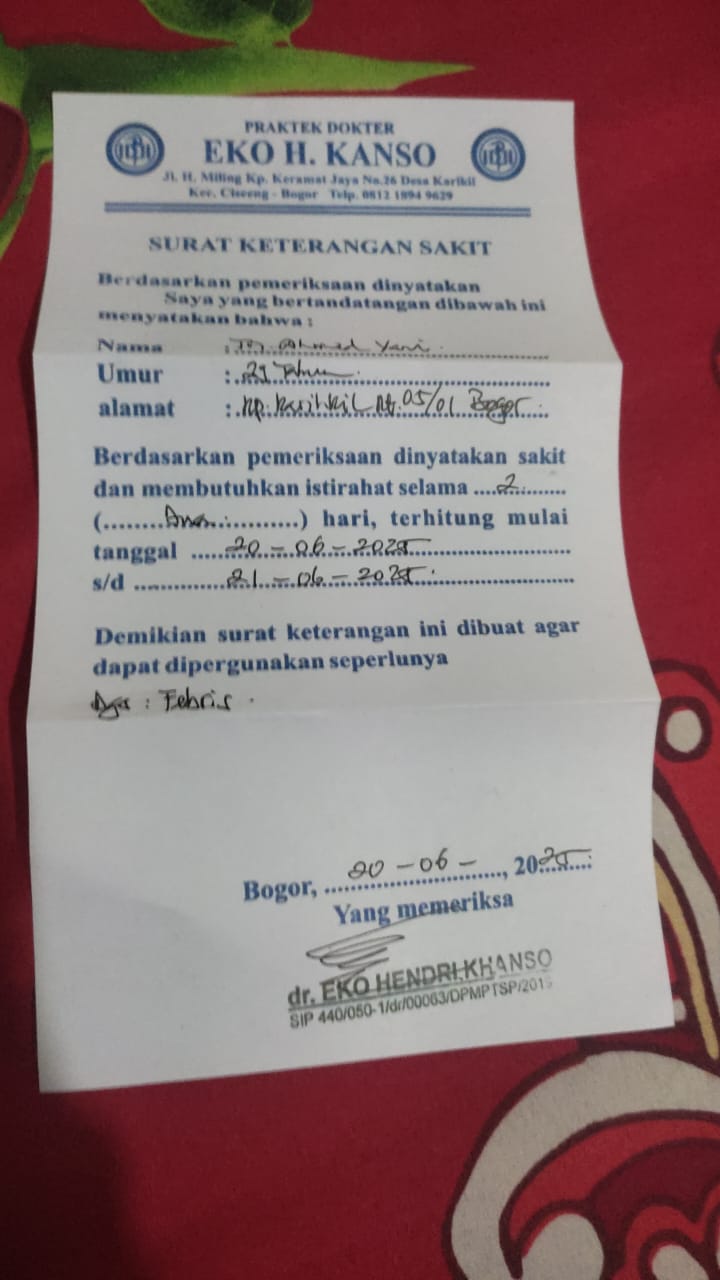 PRAKTEK DOKTER
EKO H. KANSO
Jl. H. Miling Kp. Keramat Jaya No.26 Desa Karikil
Kec. Ciseeng - Bogor Telp. 0812 1894 9629
SURAT KETERANGAN SAKIT
Berdasarkan pemeriksaan dinyatakan
Saya yang bertandatangan dibawah ini
menyatakan bahwa :
Nama : Ahmed Yani
Umur : 29 Tahun
alamat : Kp. Karihkil Rt. 05/01 Bogor
Berdasarkan pemeriksaan dinyatakan sakit
dan membutuhkan istirahat selama ....2.........
(........Dua............) hari, terhitung mulai
tanggal 20-06-2025
s/d 21-06-2025
Demikian surat keterangan ini dibuat agar
dapat dipergunakan seperlunya
: Febris
Bogor, 20-06-, 2025
Yang memeriksa
dr. EKO HENDRI KHANSO
SIP 440/050-1/dr/00063/DPMPTSP/2019